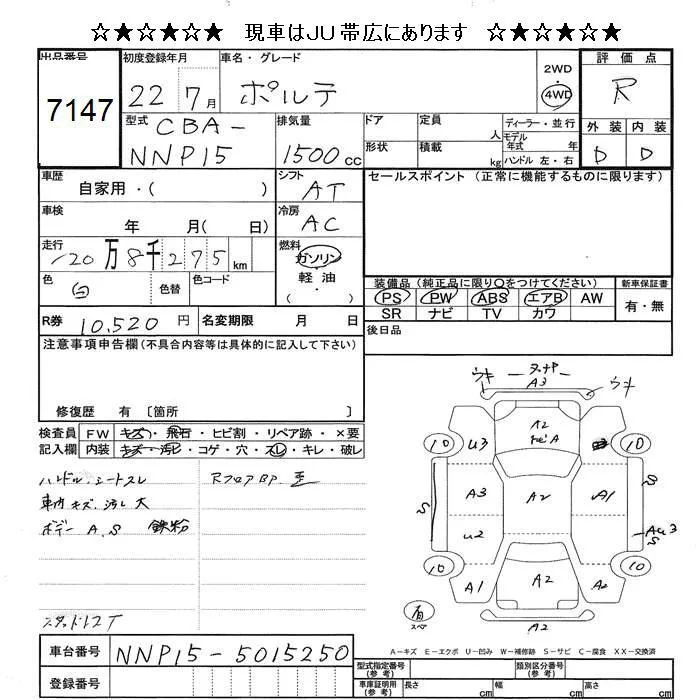 ☆★☆★☆★ 現車はJU帯広にあります ☆★☆★☆★
出品番号
7147
初度登録年月
22 7月
車名・グレード
ポルテ
2WD
・
4WD
評価点
R
型式
CBA-
NNP15
排気量
1500 cc
ドア
定員
人
形状
積載
kg
ディーラー・並行
モデル
年式 年
ハンドル 左・右
外装 内装
D D
車歴
自家用・( )
シフト
AT
セールスポイント (正常に機能するものに限ります)
車検
年 月( 日)
冷房
AC
走行
20万8千275 km
燃料
ガソリン
軽油
・
色
白
色替
色コード
装備品 (純正品に限り〇をつけてください)
新車保証書
PS PW ABS エアB AW
SR ナビ TV カワ
有・無
R券
10,520 円
名変期限 月 日
後日品
注意事項申告欄 (不具合内容等は具体的に記入して下さい)
修復歴 有 〔箇所 〕
検査員
記入欄
FW キズ・飛石・ヒビ割・リペア跡・×要
内装 キズ・汚レ・コゲ・穴・スレ・キレ・破レ
ハンドル・シートスレ
車内キズ・汚レ大
ボデー A.S 鉄粉
RフロアBP
ウキ
A3
ウキ
10
U3
A2
トビA
10
A3
A2
A1
S
S
U2
S
10
10
A1
A2
A2
A2
有
スペア
A-キズ E-エクボ U-凹み W-補修跡 S-サビ C-腐食 XX-交換済
車台番号
NNP15-5015250
登録番号
型式指定番号
(参考)
類別区分番号
(参考)
車庫証明用
(参考)
長さ cm
幅 cm
高さ cm